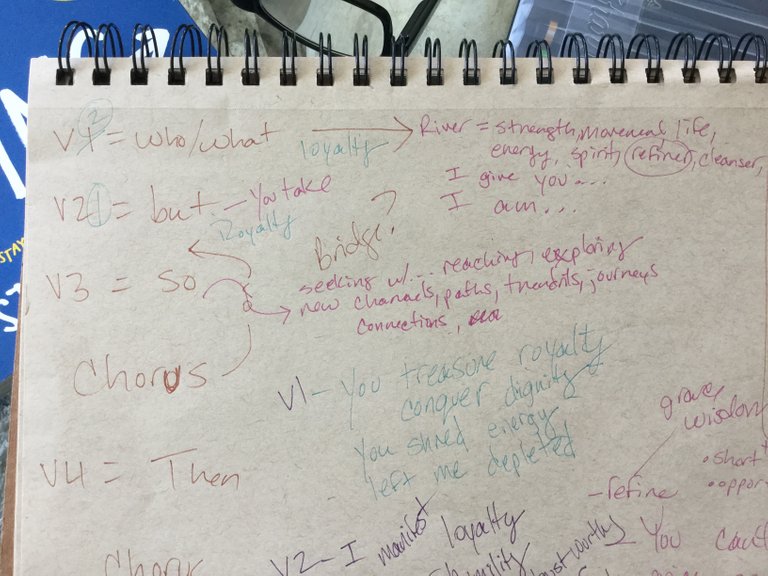 V1 2 = who/what → River = strength, movement, life,
loyalty energy, spirit, refiner, cleanser,
I give you...
I am...
V2 1 = but - You take
Royalty
Bridge?
V3 = so
seeking w/... reaching, exploring
new channels, paths, trendils, journeys
connections,
Chorus
V1- You treasure royalty
conquer dignity
You shred energy
left me depleted
grave
wisdom
• short
• oppor
V4 = Then
- refine
V2 - I manifest loyalty
humility
trustworthy
- You can't
Chorus